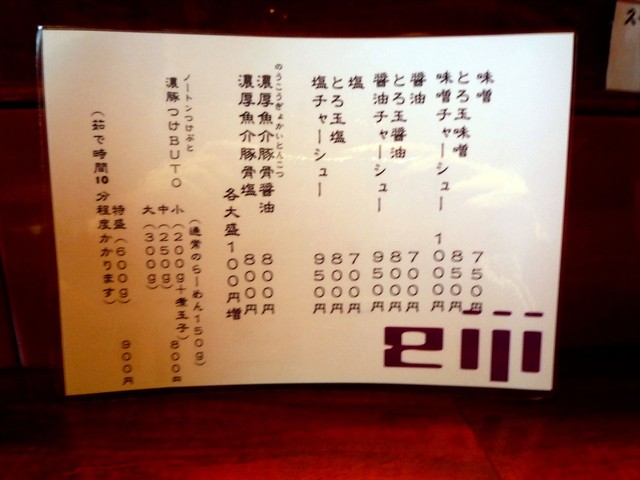 味噌 750円
とろ玉味噌 850円
味噌チャーシュー 1000円
醤油 700円
とろ玉醤油 800円
醤油チャーシュー 950円
塩 700円
とろ玉塩 800円
塩チャーシュー 950円
のうこうぎょかいとんこつ
濃厚魚介豚骨醤油 800円
濃厚魚介豚骨塩 800円
各大盛100円増
(通常のらーめん150g)
ノートンつけぶと
濃豚つけBUTO 小(200g+煮玉子)800円
中(250g)
大(300g)
特盛(600g) 900円
(茹で時間10分程度かかります)
eiji